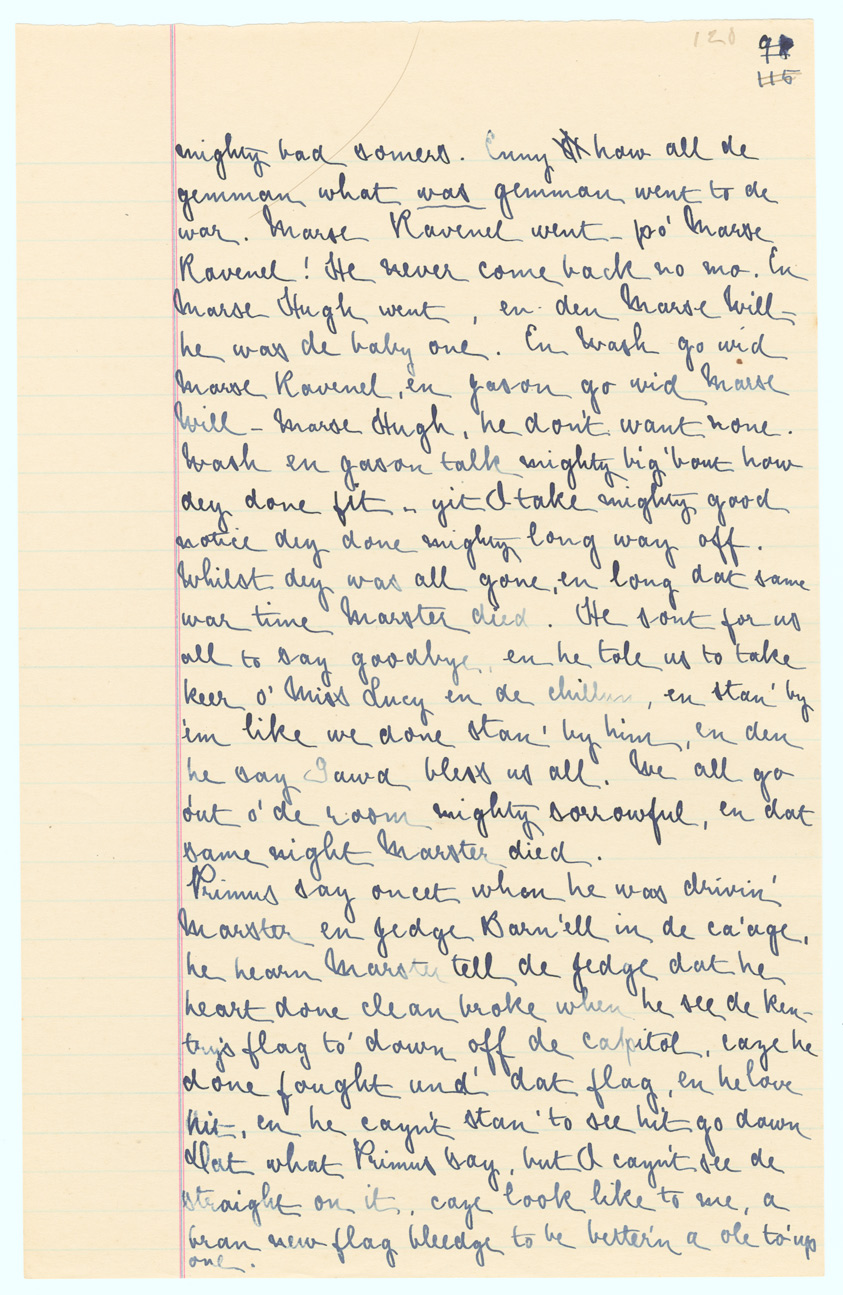 120
98
115
mighty bad somers. Enny how all de
gemman what was gemman went to de
war. Marse Ravenel went – po' Marse
Ravenel! He never come back no mo. En
Marse Hugh went, en den Marse Will –
he was de baby one. En Wash go wid
Marse Ravenel, en Jason go wid Marse
Will – Marse Hugh, he don't want none.
Wash en Jason talk mighty big 'bout how
dey done fit – yit I take mighty good
notice dey done mighty long way off.
Whilst dey was all gone, en long dat same
war time Marster died. He sont for us
all to say goodbye, en he tole us to take
keer o' Miss Lucy en de chillun, en stan' by
'em like we done stan' by him, en den
he say Gawd bless us all. We all go
out o' de room mighty sorrowful, en dat
same night Marster died.
Primus say oncet when he was drivin'
Marster en Jedge Barn'ell in de ca'age,
he hearn Marster tell de Jedge dat he
heart done clean broke when he see de ken-
try's flag to' down off de capitol, caze he
done fought und' dat flag, en he love
hit, en he cayn't stan' to see hit go down
Dat what Primus say, but I cayn't see de
straight on it, caze look like to me, a
bran new flag bleedge to be better'n a ole to' up
one.